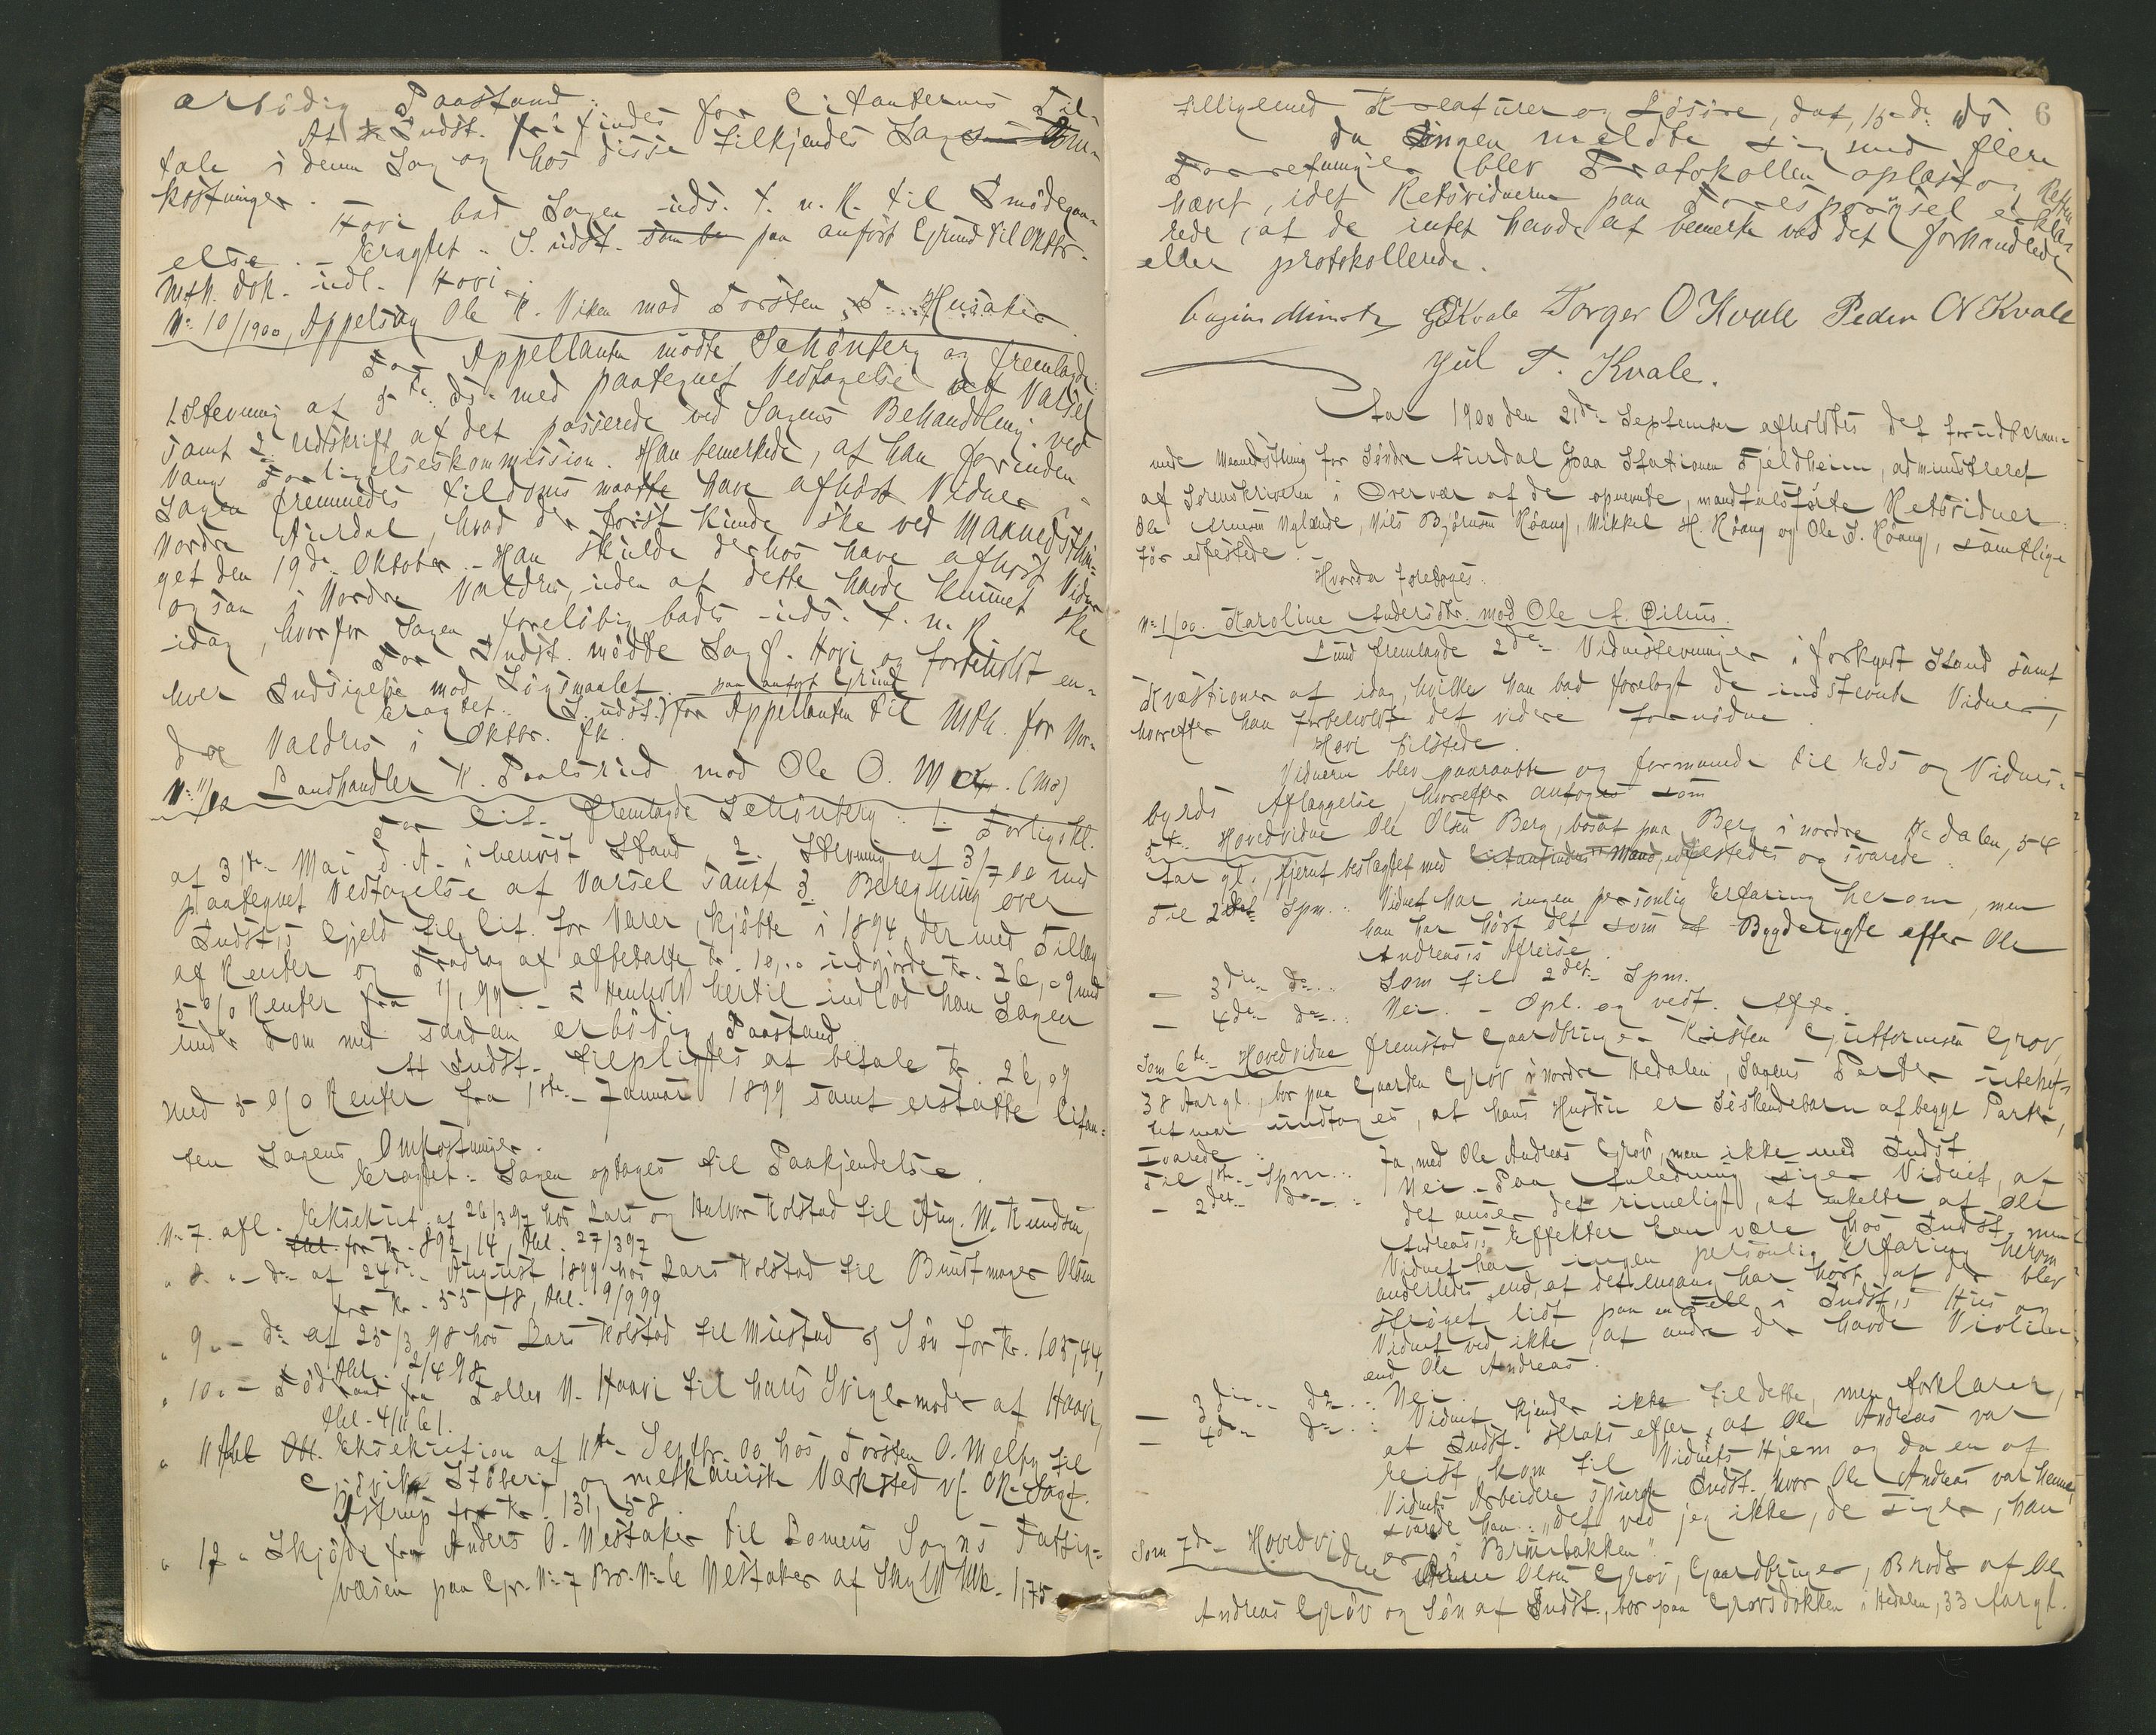 ærbødig Paastand:
At Indst. frifindes for Citanternes Til-
tale i denne Sag og hos disse tilkjendes Sagsom-
kostninger.
Hovi bad Sagen uds. t. n. R. til Imødegaa-
else. - Eragtet: S. udst. paa anført Grund til Oktbr.
Mth. dok. udl. Hovi.
No 10/1900, Appelsag Ole K. Viken mod Torsten T. Husaker.
For Appellanten mødte Schønberg og fremlagde:
1 Stevning af 5te ds. med paategnet Vedtagelse af Varsel
samt 2. Udskrift af det passerede ved Sagens Behandling ved
Vangs Forligelseskommission. Han bemerkede, at han forinden
Sagen fremmedes tildoms maatte have afhørt Vidner i
Nordre Aurdal, hvad der først kunde ske ved Maanedsthin-
get den 19de Oktober. - Han skulde derhos have afhørt Vidner
ogsaa i Nordre Valdres, uden at dette havde kunnet ske
idag, hvorfor Sagen foreløbig bades uds. t. n. R.
For Indst. mødte Sagf. Hovi og forbeholdt en-
hver Indsigelse mod Søgsmaalet.
Eragtet: S. udst. paa anført Grund for Appellanten til Mth. for Nor-
dre Valdres i Oktbr. fk.
No 11/00 Landhandler K. Paalsrud mod Ole O. Mo. (Mo)
For Cit. fremlagde Schønberg: 1. Forligskl.
af 31te Mai d. A. i henvist Stand 2. Stevning af 3/7 00 med
paategnet Vedtagelse af Varsel samt 3 Beregning over
Indst.s Gjeld til Cit. for Varer, kjøbte i 1894, der med Tillæg
af Renter og Fradrag af afbetalte Kr. 10,00 udgjorde Kr. 26,09 med
5 % Renter fra 1/1 99. - I Henhold hertil indlod han Sagen
under Dom med saadan ærbødig Paastand:
At Indst. tilpligtes at betale Kr. 26,09
med 5 % Renter fra 1ste Januar 1899 samt erstatte Citan-
ten Sagens Omkostninger.
Eragtet: Sagen optages til Paakjendelse.
No 7. afl. Eksekut. af 26/3 97 hos Lars og Halvor Kolstad til Aug. M. Knudsen,
for Kr. 892,14, thl. 27/3 97
" 8. " - do af 24de August 1899 hos Lars Kolstad til Buntmager Olsen
for Kr. 55,48, thl. 9/9 99
" 9 " - do af 25/3 98 hos Lars Kolstad til Mustad og Søn for Kr. 105,44,
thl. 2/4 98.
" 10 " - Fødraad fra Tollev N. Haavi til hans Svigermoder af Haavi,
thl. 4/11 61.
" 11 Eksekution af 11te Septbr. 00 hos Torsten O. Melby til
Gjøvik Støberi og mekaniske Verksted v/. OR Sagf.
Astrup for Kr. 131,58.
" 12 " Skjøde fra Anders O. Vestaker til Lomens Sogns Fattig-
væsen paa Gr. No 7 Br. No 6 Vestaker af Skyld Mk. 1,75
6
tilligemed Kreaturer og Løsøre, dat, 15de ds
da Ingen meldte sig med flere
Forretninger blev Protokollen oplæst og Retten
hævet, idet Retsvidnerne paa Forespørgsel erklæ-
rede, at de intet havde at bemerke ved det forhandlede
eller protokollerede.
GOKvale Torger O Kvale Peder N Kvale
Jul T. Kvale.
Aar 1900 den 21de September afholdtes det forudberam-
mede Maanedsthing for Søndre Aurdal paa Stationen Fjeldheim, administreret
af Sorenskriveren i Overvær af de opnævnte, mandtalsførte Retsvidner:
Ole Arnesen Nylænde, Nils Bjørnsen Høang, Mikkel H. Høang og Ole I. Høang, samtlige
før edfestede.
Hvorda foretoges:
No 1/00. Karoline Andersdtr. mod Ole A. Øilus.
Lund fremlagde 2de Vidnestevninger i forkyndt Stand samt
Kvæstioner af idag, hvilke han bad forelagt de indstevnte Vidner,
hvorefter han forbeholdt det videre fornødne.
Hovi tilstede.
Vidnerne blev paaraabte og formanede til Eds og Vidnes-
byrds Aflæggelse, hvorefter antoges som
5te Hovedvidne Ole Olsen Berg, bosat paa Berg i nordre Hedalen, 54
Aar gl., fjernt beslægtet med Citantindens Mand, edfæstedes og svarede:
Til 2det Spm.: Vidnet har ingen personlig Erfaring herom, men
han har hørt det som et Bygderygte efter Ole
Andreas's Afreise.
- 3die do: Som til 2det Spm.
- 4de do: Nei. - Opl. og vedt. Aftr.
Som 6te Hovedvidne fremstod Gaardbruger Kristen Guttormsen Grøv,
38 Aar gl., bor paa Gaarden Grøv i nordre Hedalen, Sagens Parter ubeslæg-
tet naar undtages, at hans Hustru er Søskendebarn af begge Parter,
svarede:
Til 1ste Spm.: Ja, med Ole Andreas Grøv, men ikke med Indst.
- 2det do: Nei. - Paa Anledning siger Vidnet, at
det anser det rimeligt, at enkelte af Ole
Andreas's Effekter kan være hos Indst., men
Vidnet har ingen personlig Erfaring herom
anderledes end, at det engang har hørt, at der blev
strøget lidt paa en Fele i Indst.s Hus og
Vidnet ved ikke, at andre der havde Violin
end Ole Andreas.
- 3die do: Nei.
- 4de do: Vidnet kjender ikke til dette, men forklarer,
at Indst. straks efter, at Ole Andreas var
reist, kom til Vidnets Hjem og da en af
Vidnets Arbeidere spurgte Indst. hvor Ole Andreas var henne,
svarede han: "det ved jeg ikke, de siger, han
er i Bruubakken".
Som 7de Hovedvidne Arne Olsen Grøv, Gaardbruger, Broder af Ole
Andreas Grøv og Søn af Indst., bor paa Grøvsdokken i Hedalen, 33 Aar gl.